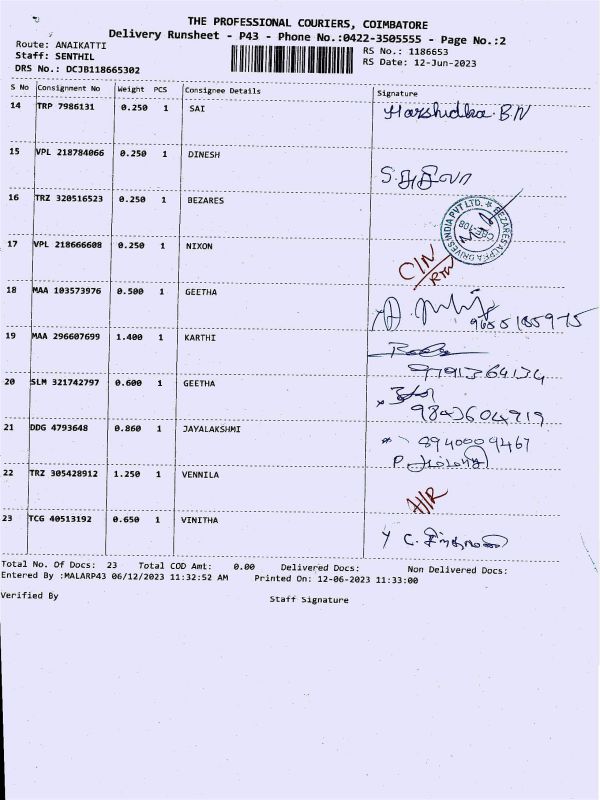 THE PROFESSIONAL COURIERS, COIMBATORE
Delivery Runsheet - P43 - Phone No.:0422-3505555 - Page No.:2
Route: ANAIKATTI
RS No.: 1186653
Staff: SENTHIL
RS Date: 12-Jun-2023
DRS No.: DCJB118665302
S No Consignment No Weight PCS Consignee Details Signature
14 TRP 7986131 0.250 1 SAI Harshidha.B.N
15 VPL 218784066 0.250 1 DINESH
16 TRZ 320516523 0.250 1 BEZARES
BEZARES ALPEA DRIVES INDIA PVT LTD. ★
17 VPL 218666608 0.250 1 NIXON C/N
18 MAA 103573976 0.500 1 GEETHA
19 MAA 296607699 1.400 1 KARTHI
9791364134
20 SLM 321742797 0.600 1 GEETHA
9843604919
21 DDG 4793648 0.860 1 JAYALAKSHMI
8940009467
22 TRZ 305428912 1.250 1 VENNILA
23 TCG 40513192 0.650 1 VINITHA
Total No. Of Docs: 23 Total COD Amt: 0.00 Delivered Docs: Non Delivered Docs:
Entered By :MALARP43 06/12/2023 11:32:52 AM Printed On: 12-06-2023 11:33:00
Verified By Staff Signature